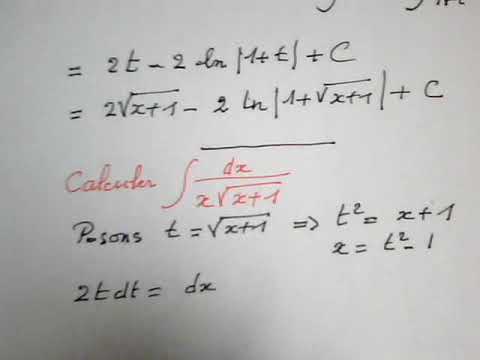 = 2t - 2 ln |1+t| + C
= 2√(x+1) - 2 ln |1+√(x+1)| + C
Calculer ∫ dx / (x√(x+1))
Posons t = √(x+1) ⇒ t² = x+1
x = t² - 1
2tdt = dx